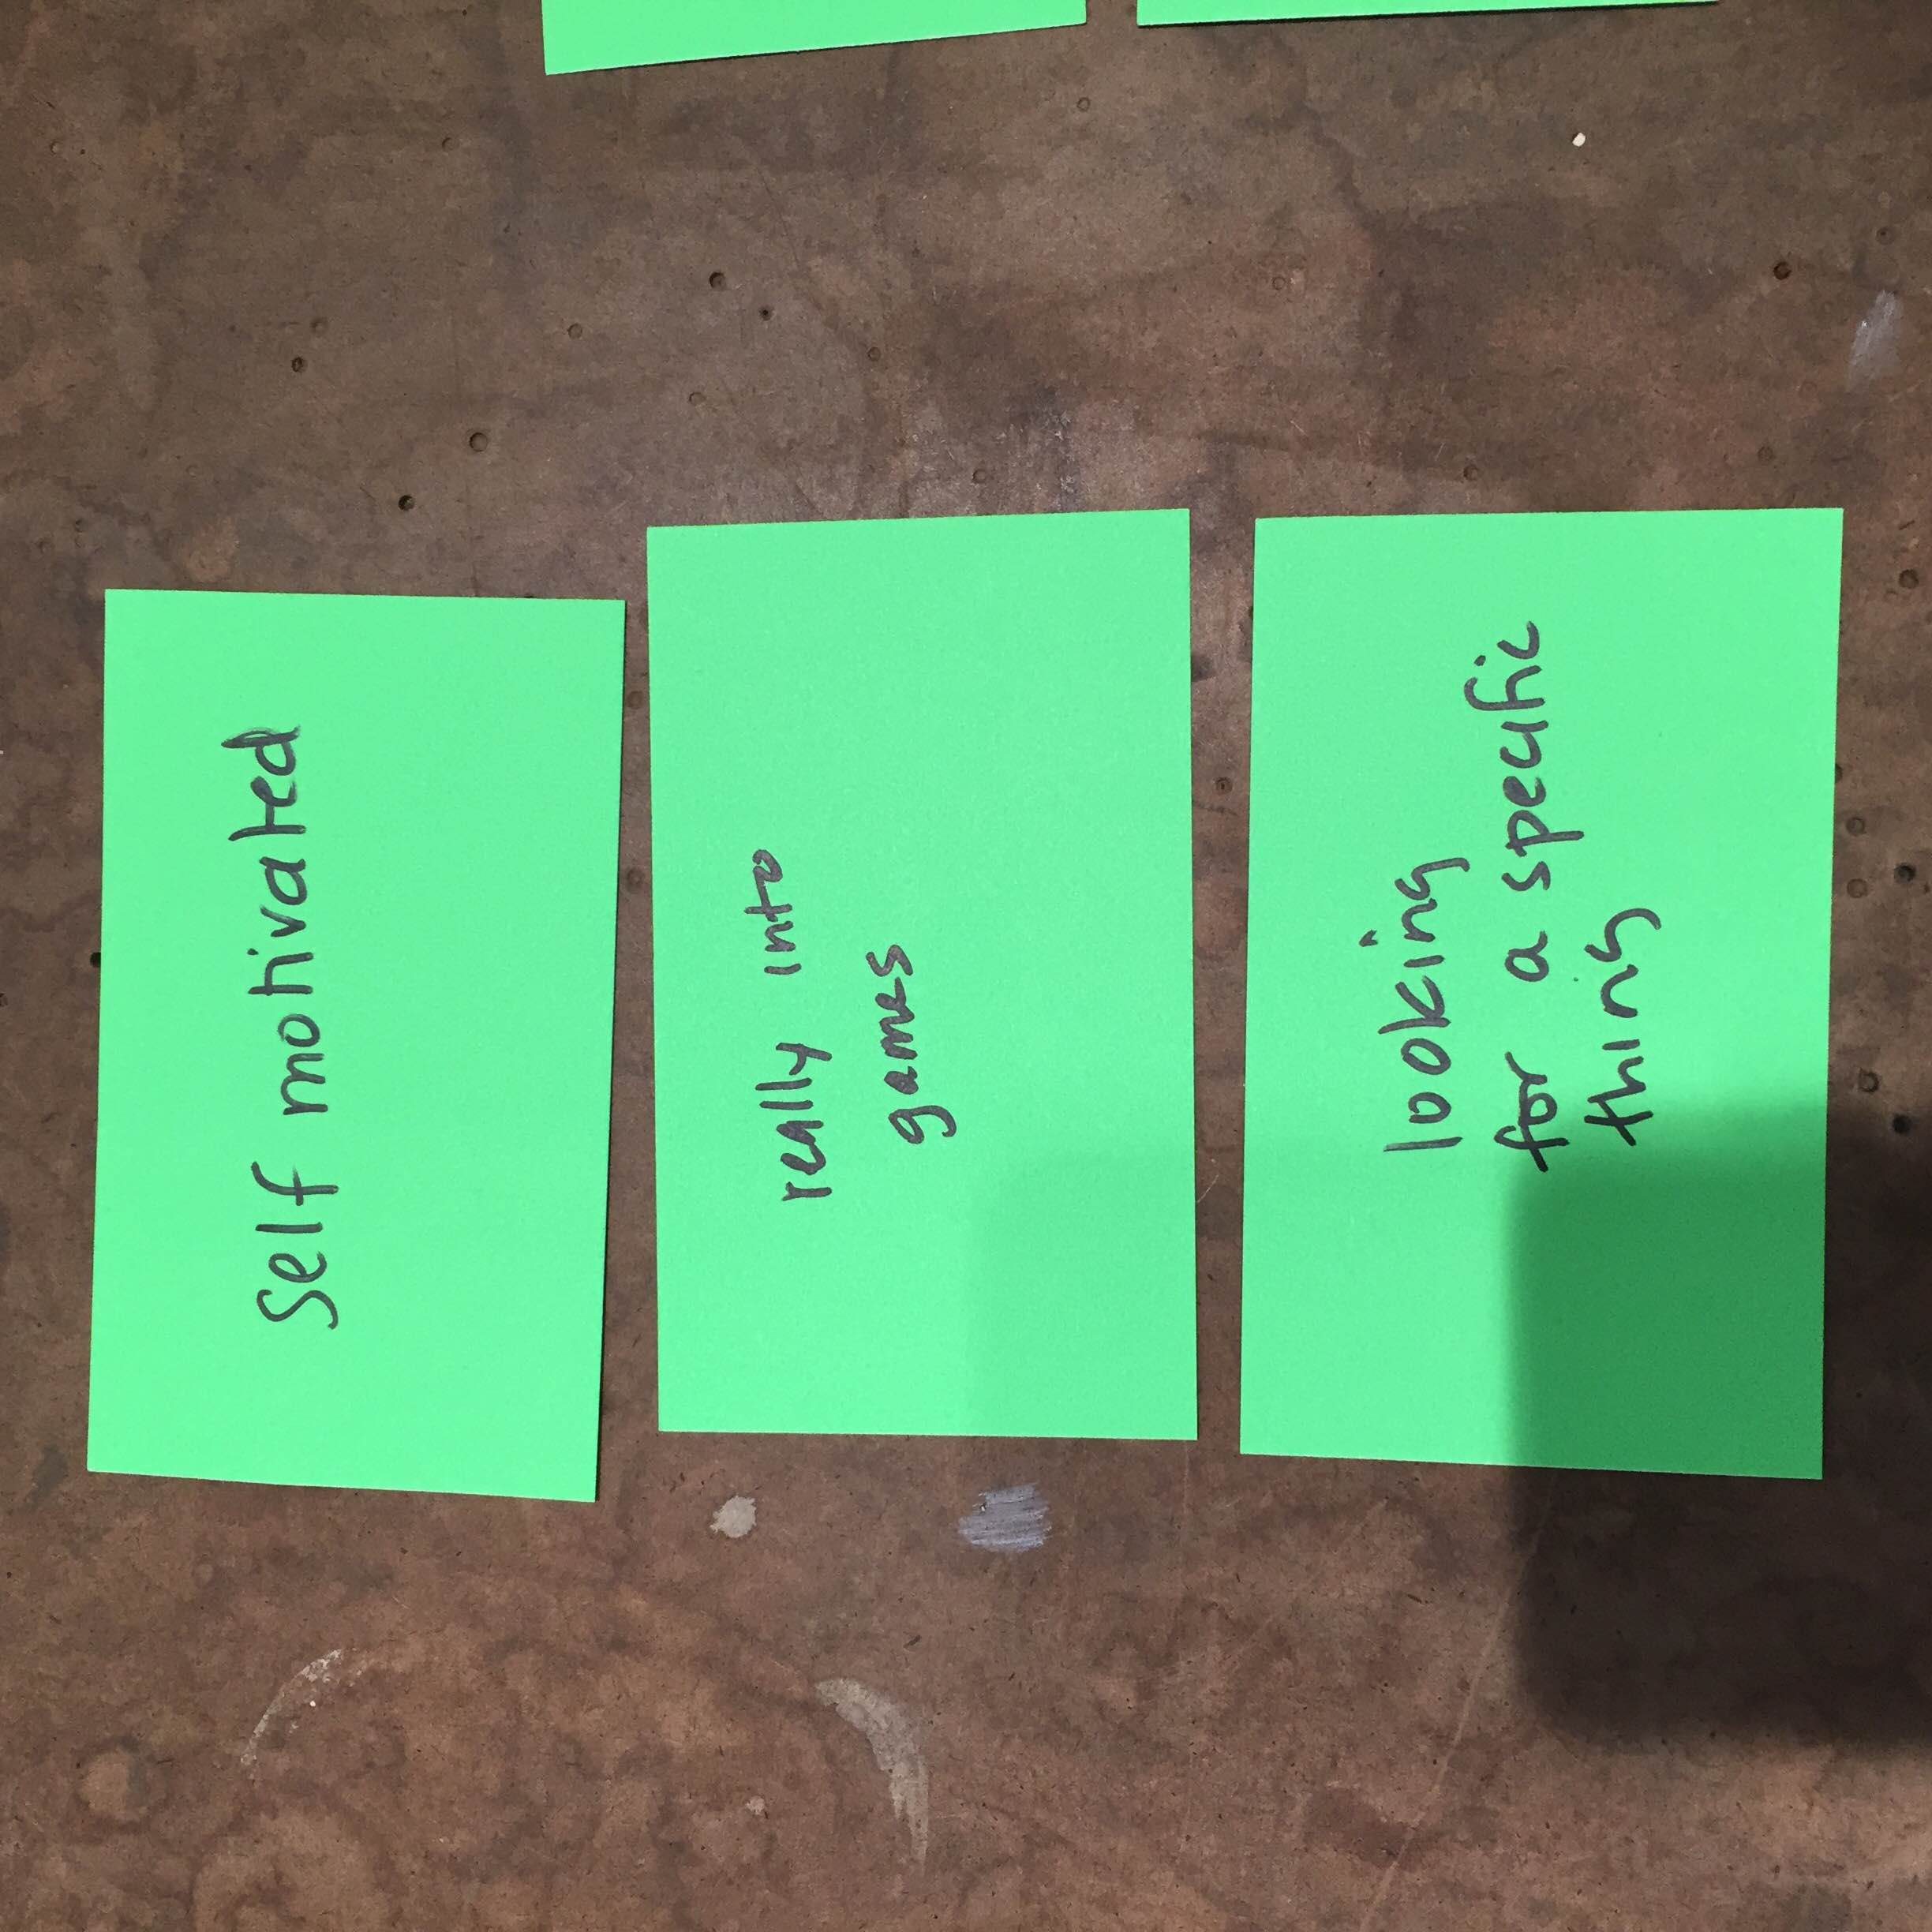 Self motivated
really into
games
looking
for a specific
thing